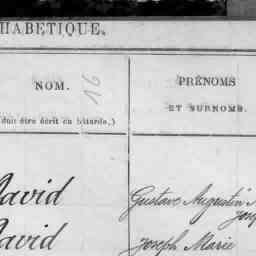 HABÉTIQUE.
NOM.
16
PRÉNOMS
ET SURNOMS.
doit être écrit en bâtarde.)
David
Gustave Augustin
David
Joseph Marie